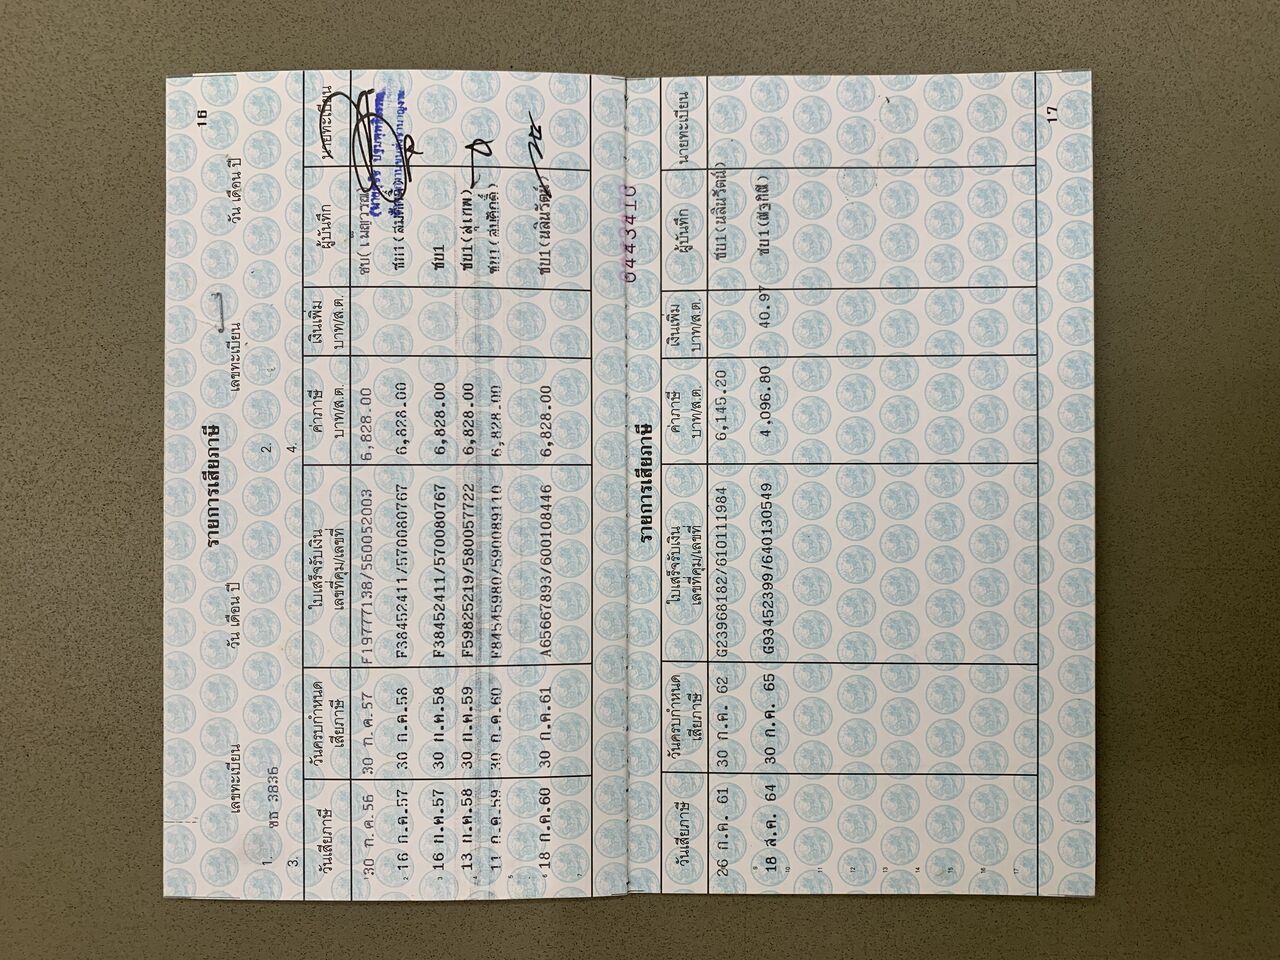 16
รายการเสียภาษี
เลขทะเบียน วัน เดือน ปี เลขทะเบียน วัน เดือน ปี
1. ขธ 3836 2.
3. 4.
วันเสียภาษี วันครบกำหนดเสียภาษี ใบเสร็จรับเงิน เลขที่คุม/เลขที่ ค่าภาษี บาท/ส.ต. เงินเพิ่ม บาท/ส.ต. ผู้บันทึก นายทะเบียน
1 30 ก.ค.56 30 ก.ค.57 F19777138/560052003 6,828.00 ชบ(เพ็ญวรรณ
2 16 ก.ค.57 30 ก.ค.58 F38452411/570080767 6,828.00 ชบ1(สมศักดิ์)
3 16 ก.ค.57 30 ก.ค.58 F38452411/570080767 6,828.00 ชบ1
4 13 ก.ค.58 30 ก.ค.59 F59825219/580057722 6,828.00 ชบ1(สุเทพ)
5 11 ก.ค.59 30 ก.ค.60 F84545980/590089110 6,828.00 ชบ1(สมศักดิ์)
6 18 ก.ค.60 30 ก.ค.61 A65667893/600108446 6,828.00 ชบ1(นลินวัตน์)
7
0443410
รายการเสียภาษี
วันเสียภาษี วันครบกำหนดเสียภาษี ใบเสร็จรับเงิน เลขที่คุม/เลขที่ ค่าภาษี บาท/ส.ต. เงินเพิ่ม บาท/ส.ต. ผู้บันทึก นายทะเบียน
26 ก.ค. 61 30 ก.ค. 62 G23968182/610111984 6,145.20 ชบ1(นลินวัตน์)
9 18 ส.ค. 64 30 ก.ค. 65 G93452399/640130549 4,096.80 40.97
10
11
12
13
14
15
16
17
17